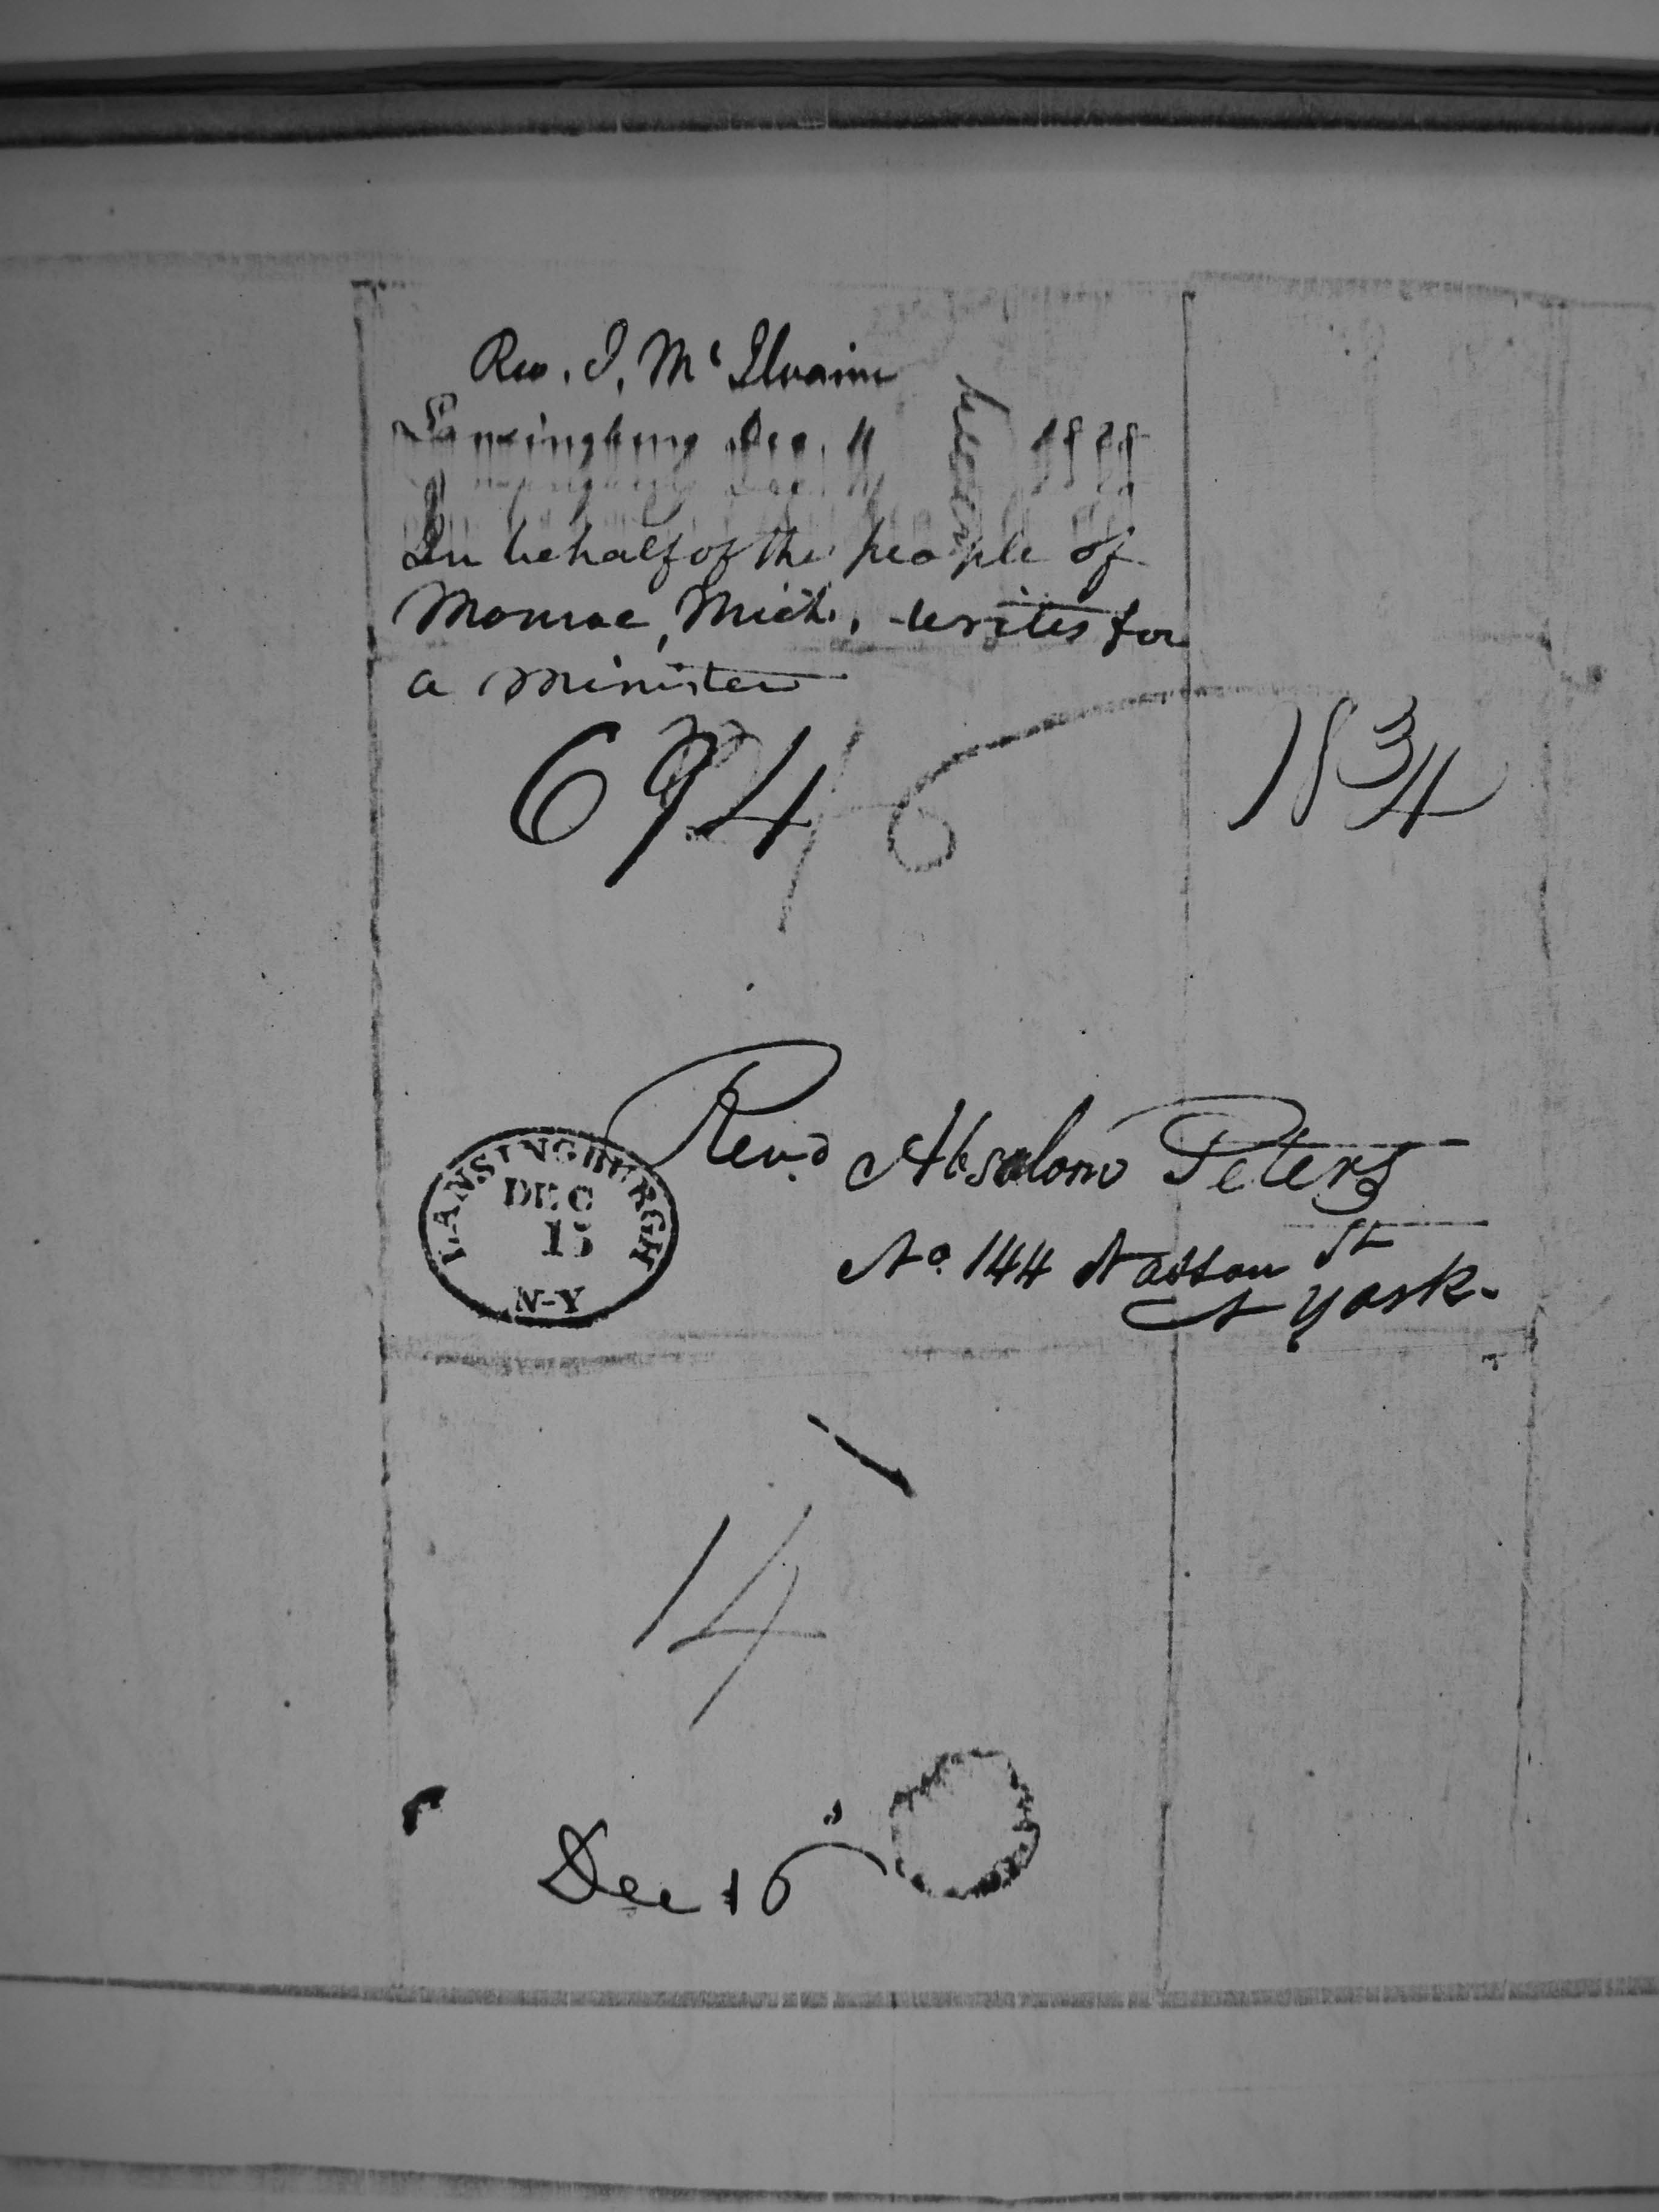 Rev. J. McIlvaine
Lansingburg Dec. 11 1828
In behalf of the people of
Monroe, Mich., writes for
a minister
694
6
18 3/4
Revd. Absolom Peters
No. 144 Nassau St
N York.
LANSINGBURGH
DEC
15
N-Y
14
Dec 16